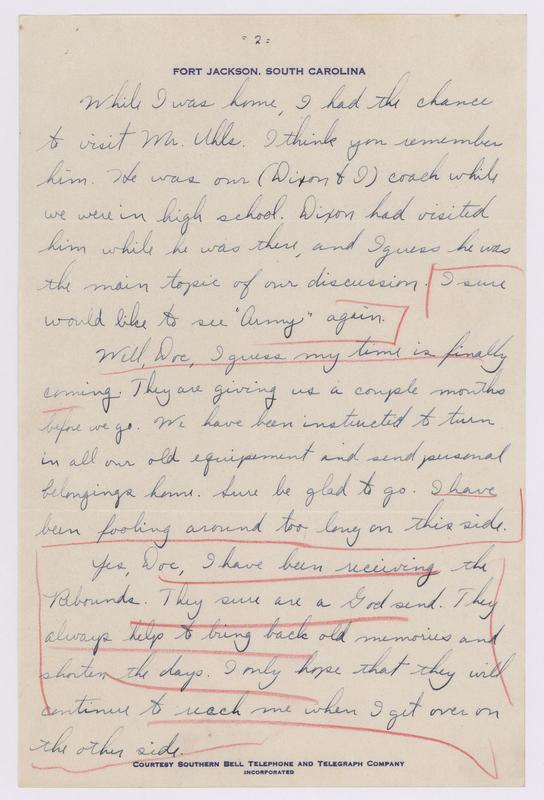 - 2 -
FORT JACKSON, SOUTH CAROLINA
While I was home, I had the chance
to visit Mr. Uhls. I think you remember
him. He was our (Dixon & I) coach while
we were in high school. Dixon had visited
him while he was there, and I guess he was
the main topic of our discussion. I sure
would like to see "Army" again.
Well, Doc, I guess my time is finally
coming. They are giving us a couple months
before we go. We have been instructed to turn
in all our old equipement and send personal
belongings home. Sure be glad to go. I have
been fooling around too long on this side.
Yes, Doc, I have been receiving the
Rebounds. They sure are a God send. They
always help to bring back old memories and
shorten the days. I only hope that they will
continue to reach me when I get over on
the other side.
COURTESY SOUTHERN BELL TELEPHONE AND TELEGRAPH COMPANY
INCORPORATED